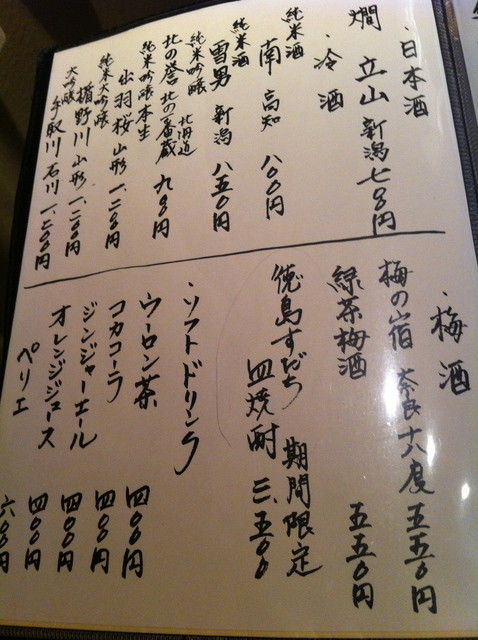 ・日本酒
燗 立山 新潟 七〇〇円
・冷酒
純米酒
南 高知 八〇〇円
純米酒
雪男 新潟 八五〇円
純米吟醸 北海道
北の誉 北の一番蔵 九〇〇円
純米吟醸本生
出羽桜 山形 一、二〇〇円
純米大吟醸
楯野川 山形 一、二〇〇円
大吟醸
手取川 石川 一、二〇〇円
・梅酒
梅の宿 奈良 十八度 五五〇円
緑茶梅酒 五五〇円
徳島すだち 期間限定
皿焼酎 三、五〇〇
・ソフトドリンク
ウーロン茶 四〇〇円
コカコーラ 四〇〇円
ジンジャーエール 四〇〇円
オレンジジュース 四〇〇円
ペリエ 六〇〇円